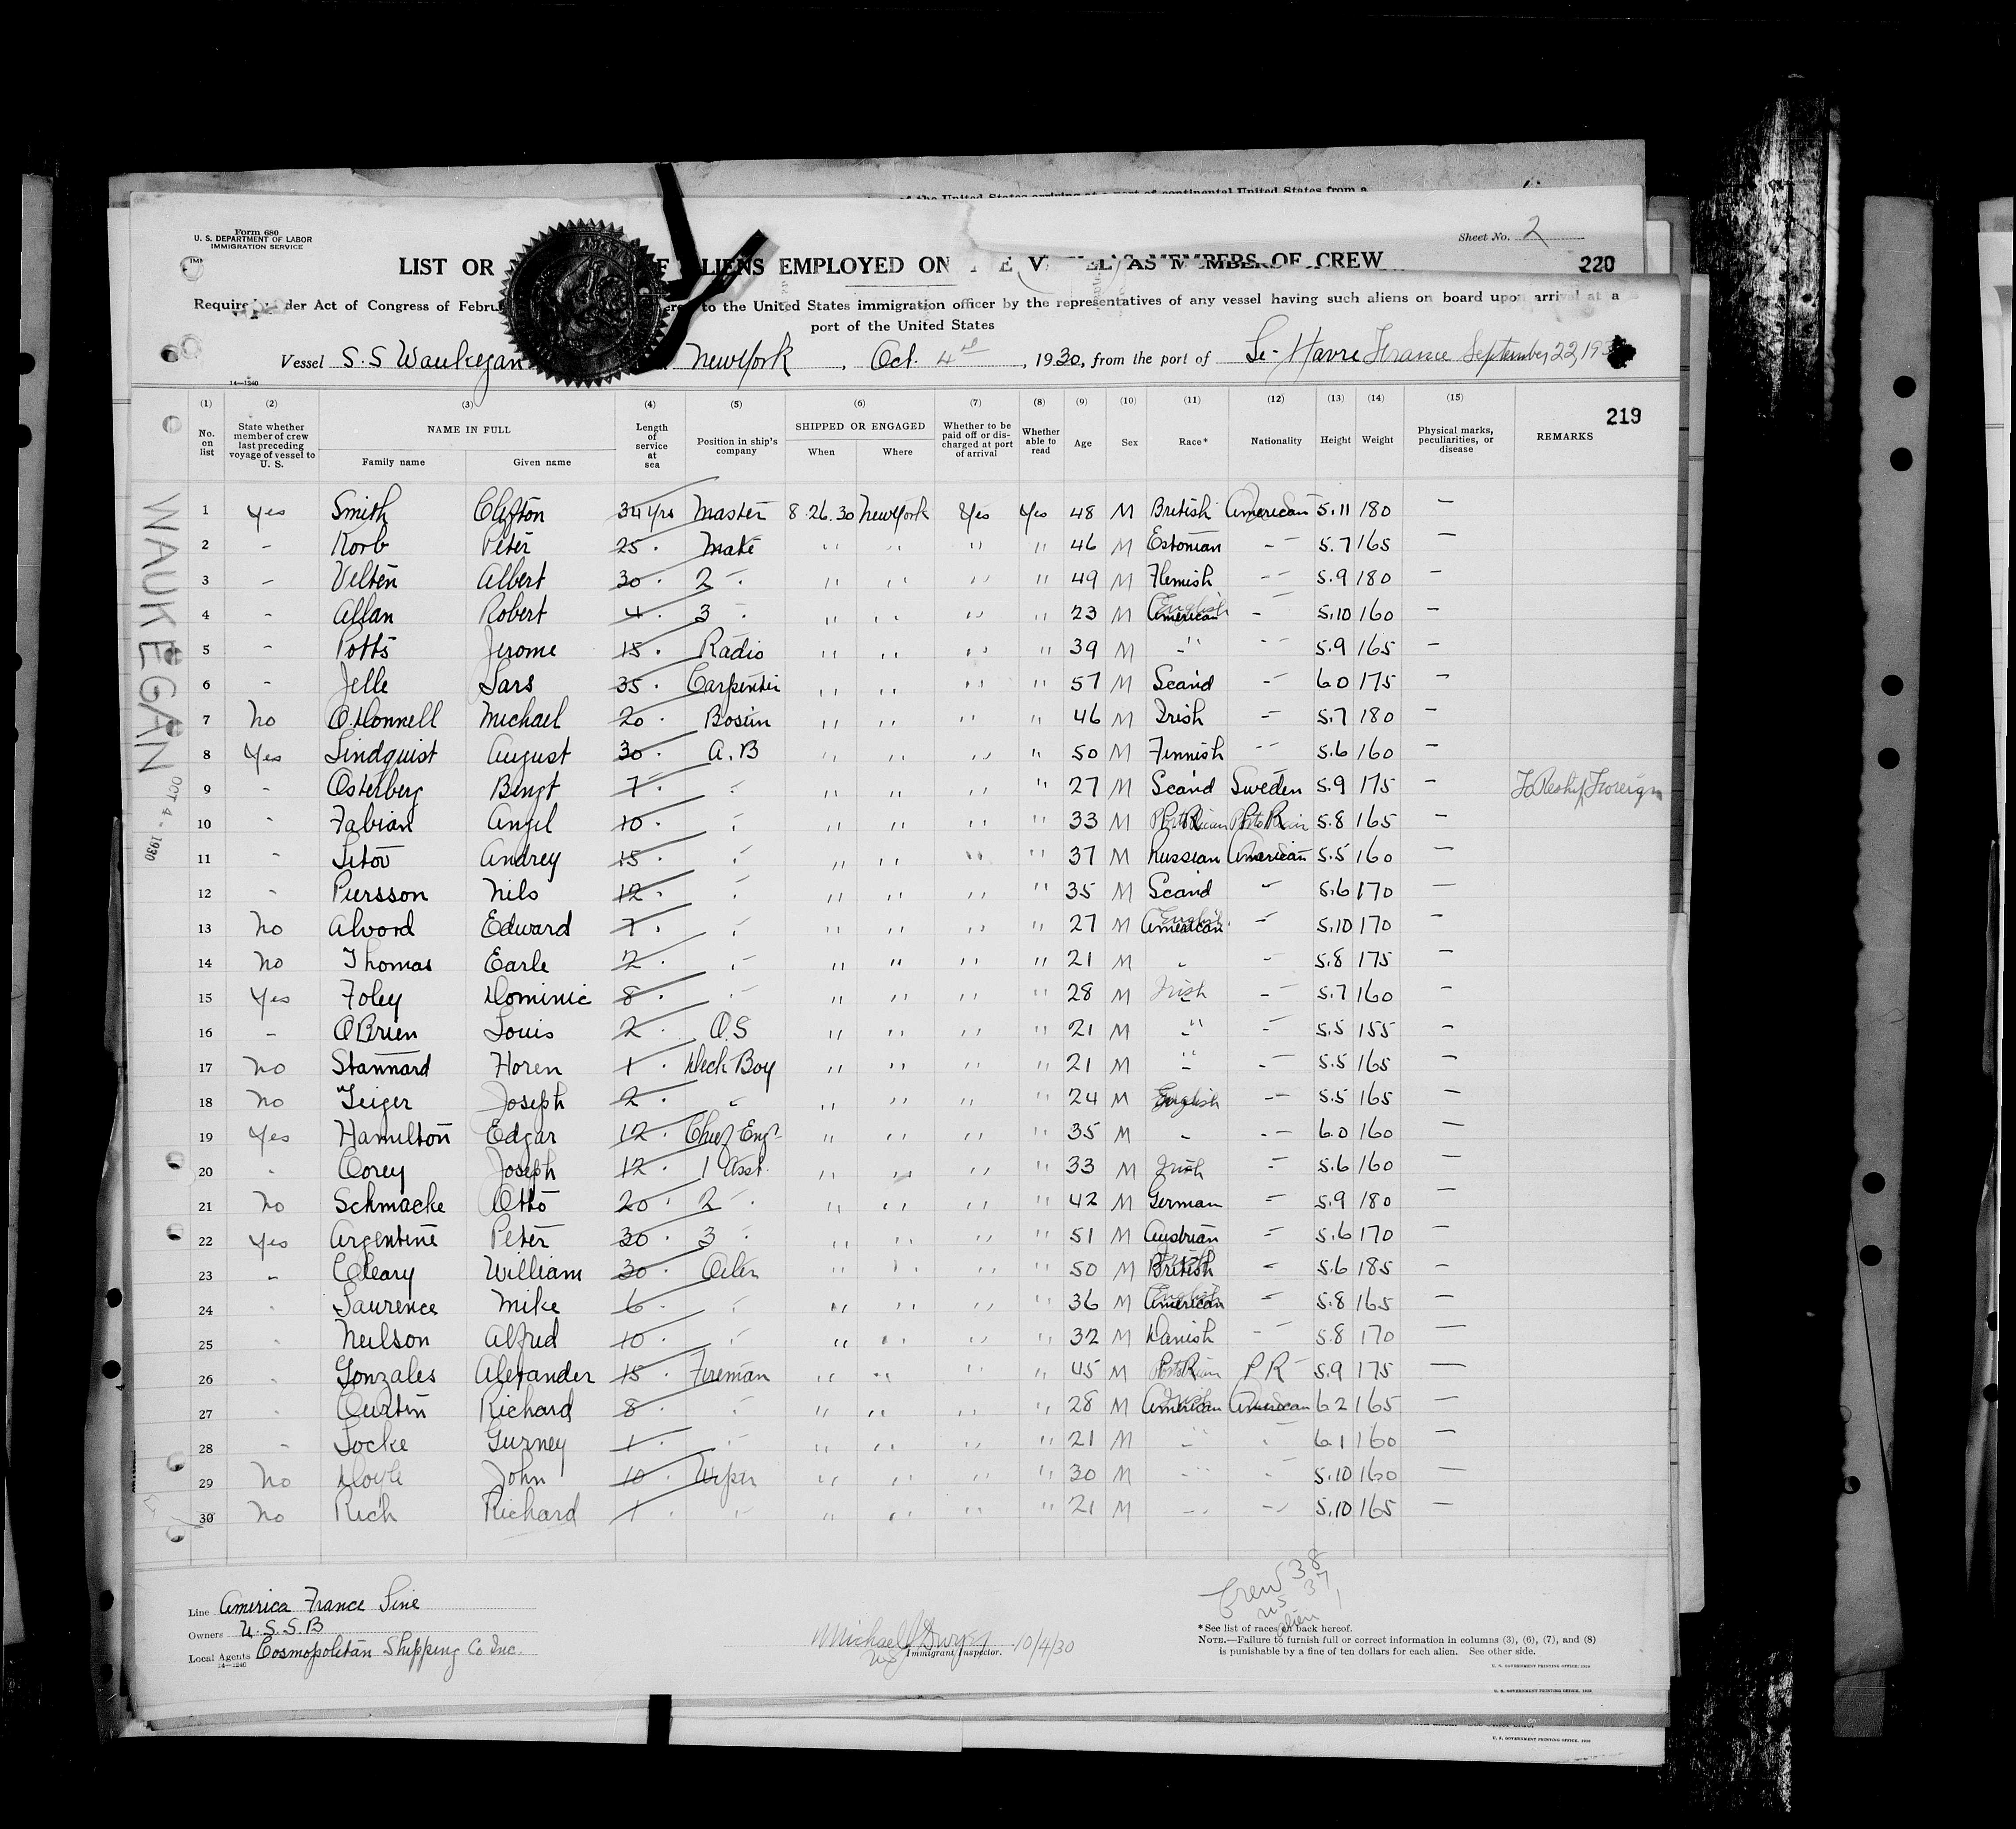 of the United States arriving at a port of continental United States from a
Form 680
U. S. DEPARTMENT OF LABOR
IMMIGRATION SERVICE
Sheet No. 2
LIST OR ALIENS EMPLOYED ON AS MEMBERS OF CREW
220
Required under Act of Congress of to the United States immigration officer by the representatives of any vessel having such aliens on board upon arrival at a
port of the United States
Vessel S.S Waukegan New York, Oct. 4, 1930, from the port of Le-Havre France September 22, 193
14—1240
219
(1) (2) (3) (4) (5) (6) (7) (8) (9) (10) (11) (12) (13) (14) (15)
No. on list State whether member of crew last preceding voyage of vessel to U. S. NAME IN FULL Family name Given name Length of service at sea Position in ship's company SHIPPED OR ENGAGED When Where Whether to be paid off or discharged at port of arrival Whether able to read Age Sex Race* Nationality Height Weight Physical marks, peculiarities, or disease REMARKS
WAUKEGAN OCT 4 - 1930
1 Yes Smith Clifton 34 yrs Master 8.26.30 New York Yes Yes 48 M British American 5.11 180 —
2 - Korb Peter 25 . Mate " " " " 46 M Estonian -- 5.7 165 —
3 - Velten Albert 30 . 2 - . " " " " 49 M Flemish -- 5.9 180 —
4 - Allan Robert 4 . 3 - . " " " " 23 M American English - 5.10 160 —
5 - Potts Jerome 15 . Radio " " " " 39 M " -- 5.9 165 —
6 - Jelle Lars 35 . Carpenter " " " " 57 M Scand -- 6.0 175 —
7 No O.Donnell Michael 20 . Bosun " " " " 46 M Irish -- 5.7 180 —
8 Yes Lindquist August 30 . A.B " " " " 50 M Finnish -- 5.6 160 —
9 - Osterberg Bengt 7 . " " " " " 27 M Scand Sweden 5.9 175 — To Reship Foreign
10 " Fabian Angel 10 . " " " " " 33 M P.R. Porto Rican 5.8 165 —
11 " Titov Andrey 15 . " " " " " 37 M Russian American 5.5 160 —
12 " Piersson Nils 12 . " " " " " 35 M Scand " 5.6 170 —
13 No Alvord Edward 7 . " " " " " 27 M American English " 5.10 170 —
14 No Thomas Earle 2 . " " " " " 21 M " " 5.8 175 —
15 Yes Foley Dominic 8 . " " " " " 28 M Irish -- 5.7 160 —
16 - OBrien Louis 2 . O.S " " " " 21 M " -- 5.5 155 —
17 No Stannard Horen 1 . Deck Boy " " " " 21 M " -- 5.5 165 —
18 No Geiger Joseph 2 . " " " " " 24 M English -- 5.5 165 —
19 Yes Hamilton Edgar 12 . Chief Engr " " " " 35 M " -- 6.0 160 —
20 " Corey Joseph 12 . 1 Asst. " " " " 33 M Irish -- 5.6 160 —
21 No Schmacke Otto 20 . 2 - . " " " " 42 M German -- 5.9 180 —
22 Yes Argentine Peter 30 . 3 - . " " " " 51 M Austrian -- 5.6 170 —
23 " Cleary William 30 . Oiler " " " " 50 M British Irish " 5.6 185 —
24 " Laurence Mike 6 . " " " " " 36 M American English " 5.8 165 —
25 " Neilson Alfred 10 . " " " " " 32 M Danish -- 5.8 170 —
26 " Gonzales Alexander 15 . Fireman " " " " 45 M P.R. Porto Rican P R 5.9 175 —
27 " Curtin Richard 8 . " " " " " 28 M American Irish American 6 2 165 —
28 " Locke Gurney 1 . " " " " " 21 M " " 6.1 160 —
29 No Doyle John 10 . Wiper " " " " 30 M " " 5.10 160 —
30 No Rich Richard 1 . " " " " " 21 M " " 5.10 165 —
Crew 38
US 37
alien 1
Line America France Line
Owners U.S.S.B
Local Agents Cosmopolitan Shipping Co Inc.
14—1240
Michael 10/4/30
Immigrant Inspector.
*See list of races on back hereof.
NOTE.—Failure to furnish full or correct information in columns (3), (6), (7), and (8)
is punishable by a fine of ten dollars for each alien. See other side.
U. S. GOVERNMENT PRINTING OFFICE
U. S. GOVERNMENT PRINTING OFFICE
U. S. GOVERNMENT PRINTING OFFICE